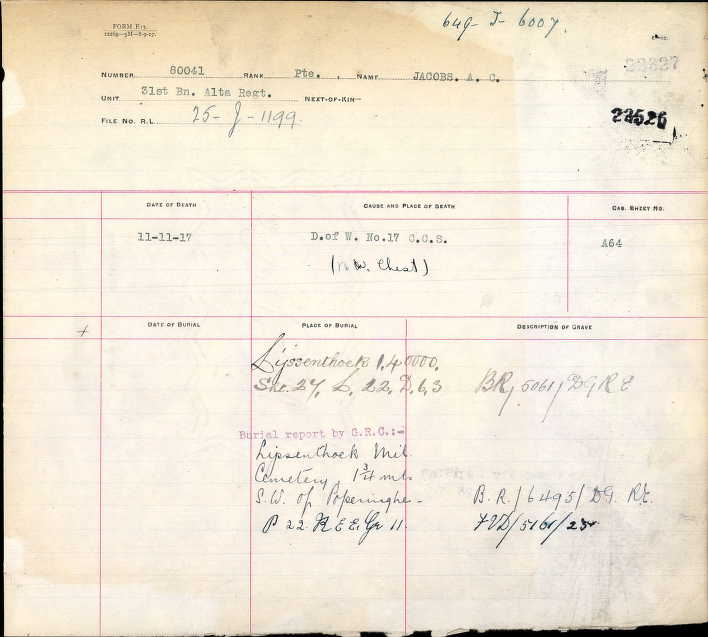 649-J-6007.
FORM E13.
22327
NUMBER 80041 RANK Pte. , NAME JACOBS. A. C.
UNIT 31st Bn. Alta Regt. NEXT-OF-KIN—
FILE NO. R.L. 25-J-1199.
22526
DATE OF DEATH CAUSE AND PLACE OF DEATH CAS. SHEET NO.
11-11-17 D.of W. No.17 C.C.S. A64
W. Chest)
+ DATE OF BURIAL PLACE OF BURIAL DESCRIPTION OF GRAVE
Lijssenthoek 1.40000.
She. 27. L. 22. D. 6.3 BR/5061/DGRE
Burial report by G.R.C.:-
Lijssenthoek Mil.
Cemetery, 1¾ mls.
S.W. of Poperinghe - B.R./6495/DG.RE.
P 22. R E E. Gr 11.